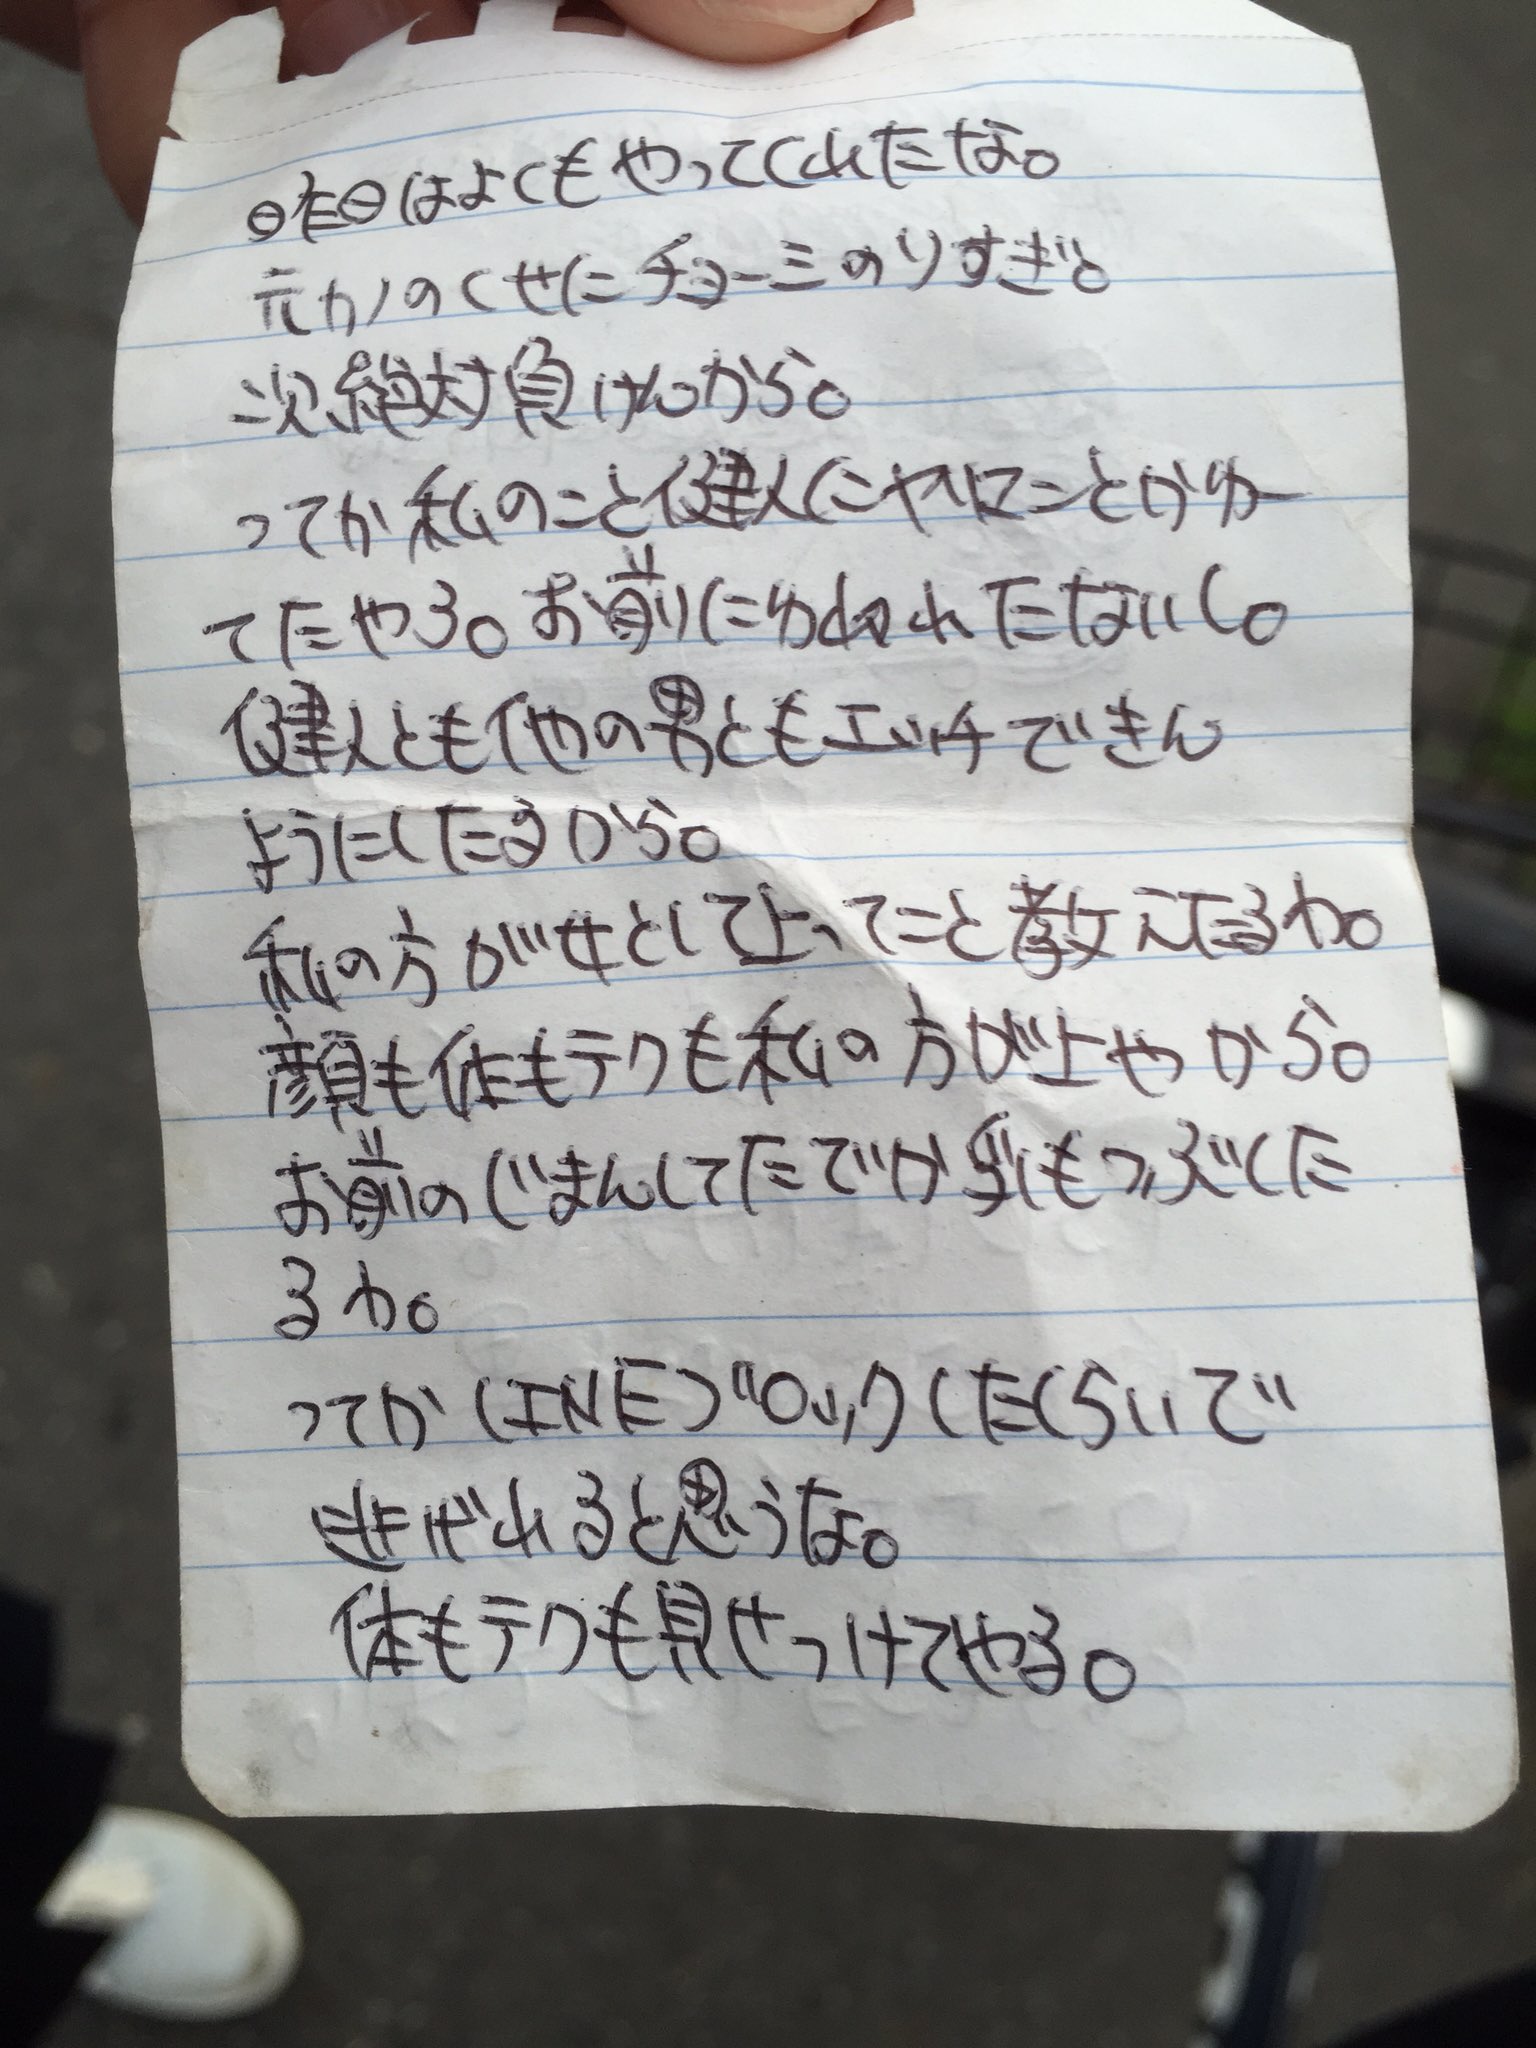 昨日はよくもやってくれたな。
元カノのくせにチョーミのりすぎ。
次絶対負けんから。
ってか私のこと健人にヤリマンとかゆー
てたやろ。お前にゆわれたないし。
健人とも他の男ともエッチできん
ようにしたるから。
私の方が女として上ってこと教えたるわ。
顔も体もテクも私の方が上やから。
お前のじまんしてたでか乳もつぶした
るわ。
ってかLINEブロックしたくらいで
逃げれると思うな。
体もテクも見せつけてやる。